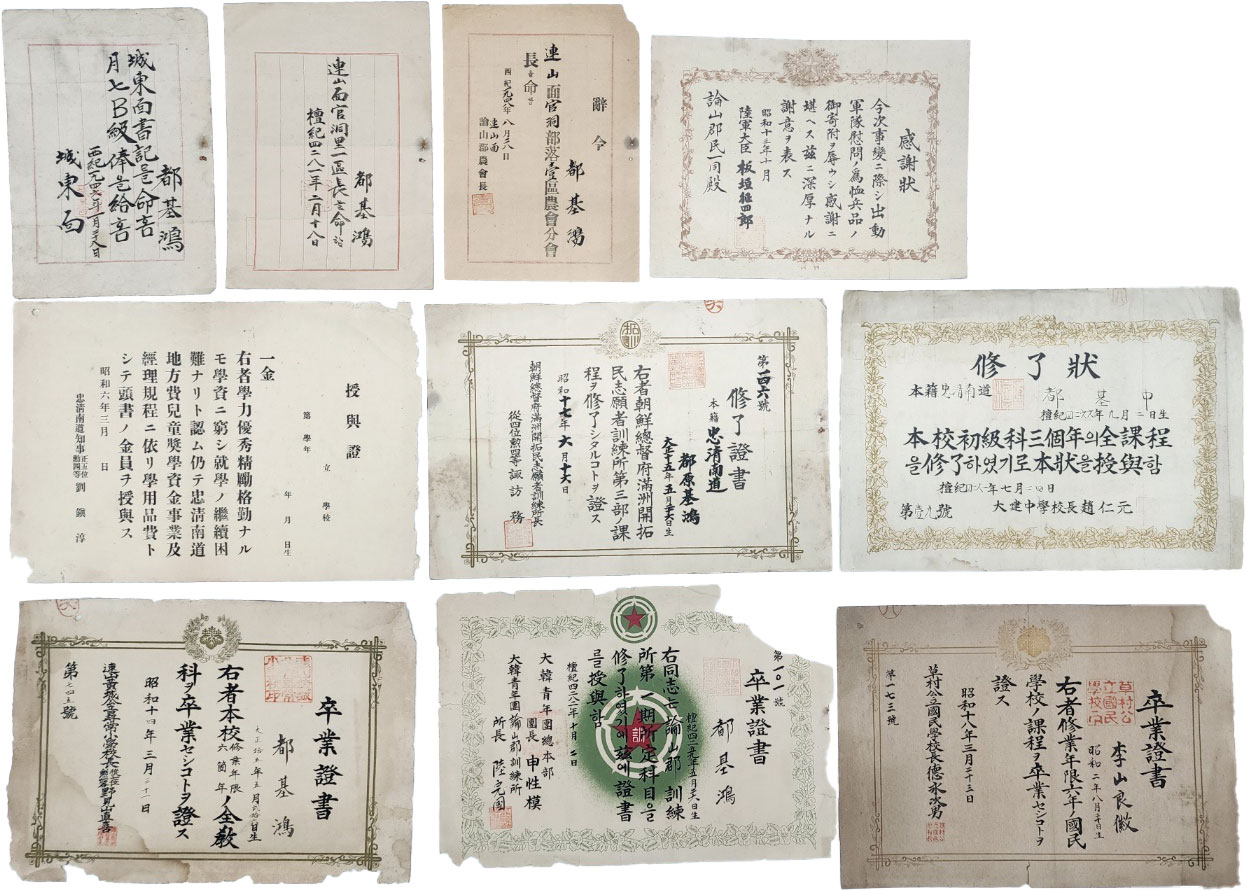 都基鴻
城東面書記를命홈
月七B級俸를給홈
城東面
都基鴻
連山面官洞里一區長을命함
檀紀四二八一年二月十八日
辭令
都基鴻
連山面官洞部落壹區農會分會
長을命함
連山面
論山郡農會長
感謝狀
今次事變ニ際シ出動
軍隊慰問ノ爲恤兵品ノ
御寄附ヲ辱ウシ感謝ニ
堪ヘス玆ニ深厚ナル
謝意ヲ表ス
昭和十三年十月
陸軍大臣 板垣征四郎
論山郡民一同殿
授與證
第 學年
立 學校
年 月 日生
一金
右者學力優秀精勵格勤ナル
モ學資ニ窮シ就學ノ繼續困
難ナリト認ム仍テ忠淸南道
地方費兒童奬學資金事業及
經理規程ニ依リ學用品費ト
シテ頭書ノ金員ヲ授與ス
昭和六年三月 日
忠淸南道知事 正五位勳四等 劉鎭淳
第一百六號
修了證書
本籍 忠淸南道
都原基鴻
大正十五年五月廿六日生
右者朝鮮總督府滿洲開拓
民志願者訓練所第三部ノ課
程ヲ修了シタルコトヲ證ス
昭和十七年六月十六日
朝鮮總督府滿洲開拓民志願者訓練所長
從四位勳四等 諏訪務
修了狀
本籍忠淸南道
都基中
本校初級科三個年의全課程
을修了하였기로本狀을授與함
大建中學校長趙仁元
卒業證書
都基鴻
右者本校修業年限六箇年ノ全敎
科ヲ卒業セシコトヲ證ス
昭和十四年三月二十一日
第七四五號
第一〇一號
卒業證書
都基鴻
檀紀四二五九年五月廿六日生
右同志는論山郡訓練
所第八期所定科目을
修了하였기에玆에證書
를授與함
檀紀四二八二年十月 日
大韓青年團總本部
團長 申性模
大韓青年團論山郡訓練所
所長
卒業證書
李山良徽
昭和二年八月二十日生
右者修業年限六年ノ國民
學校ノ課程ヲ卒業セシコトヲ
證ス
昭和十八年三月二十三日
草村公立國民學校長德永次男
第一七三號
草村公立國民學校印